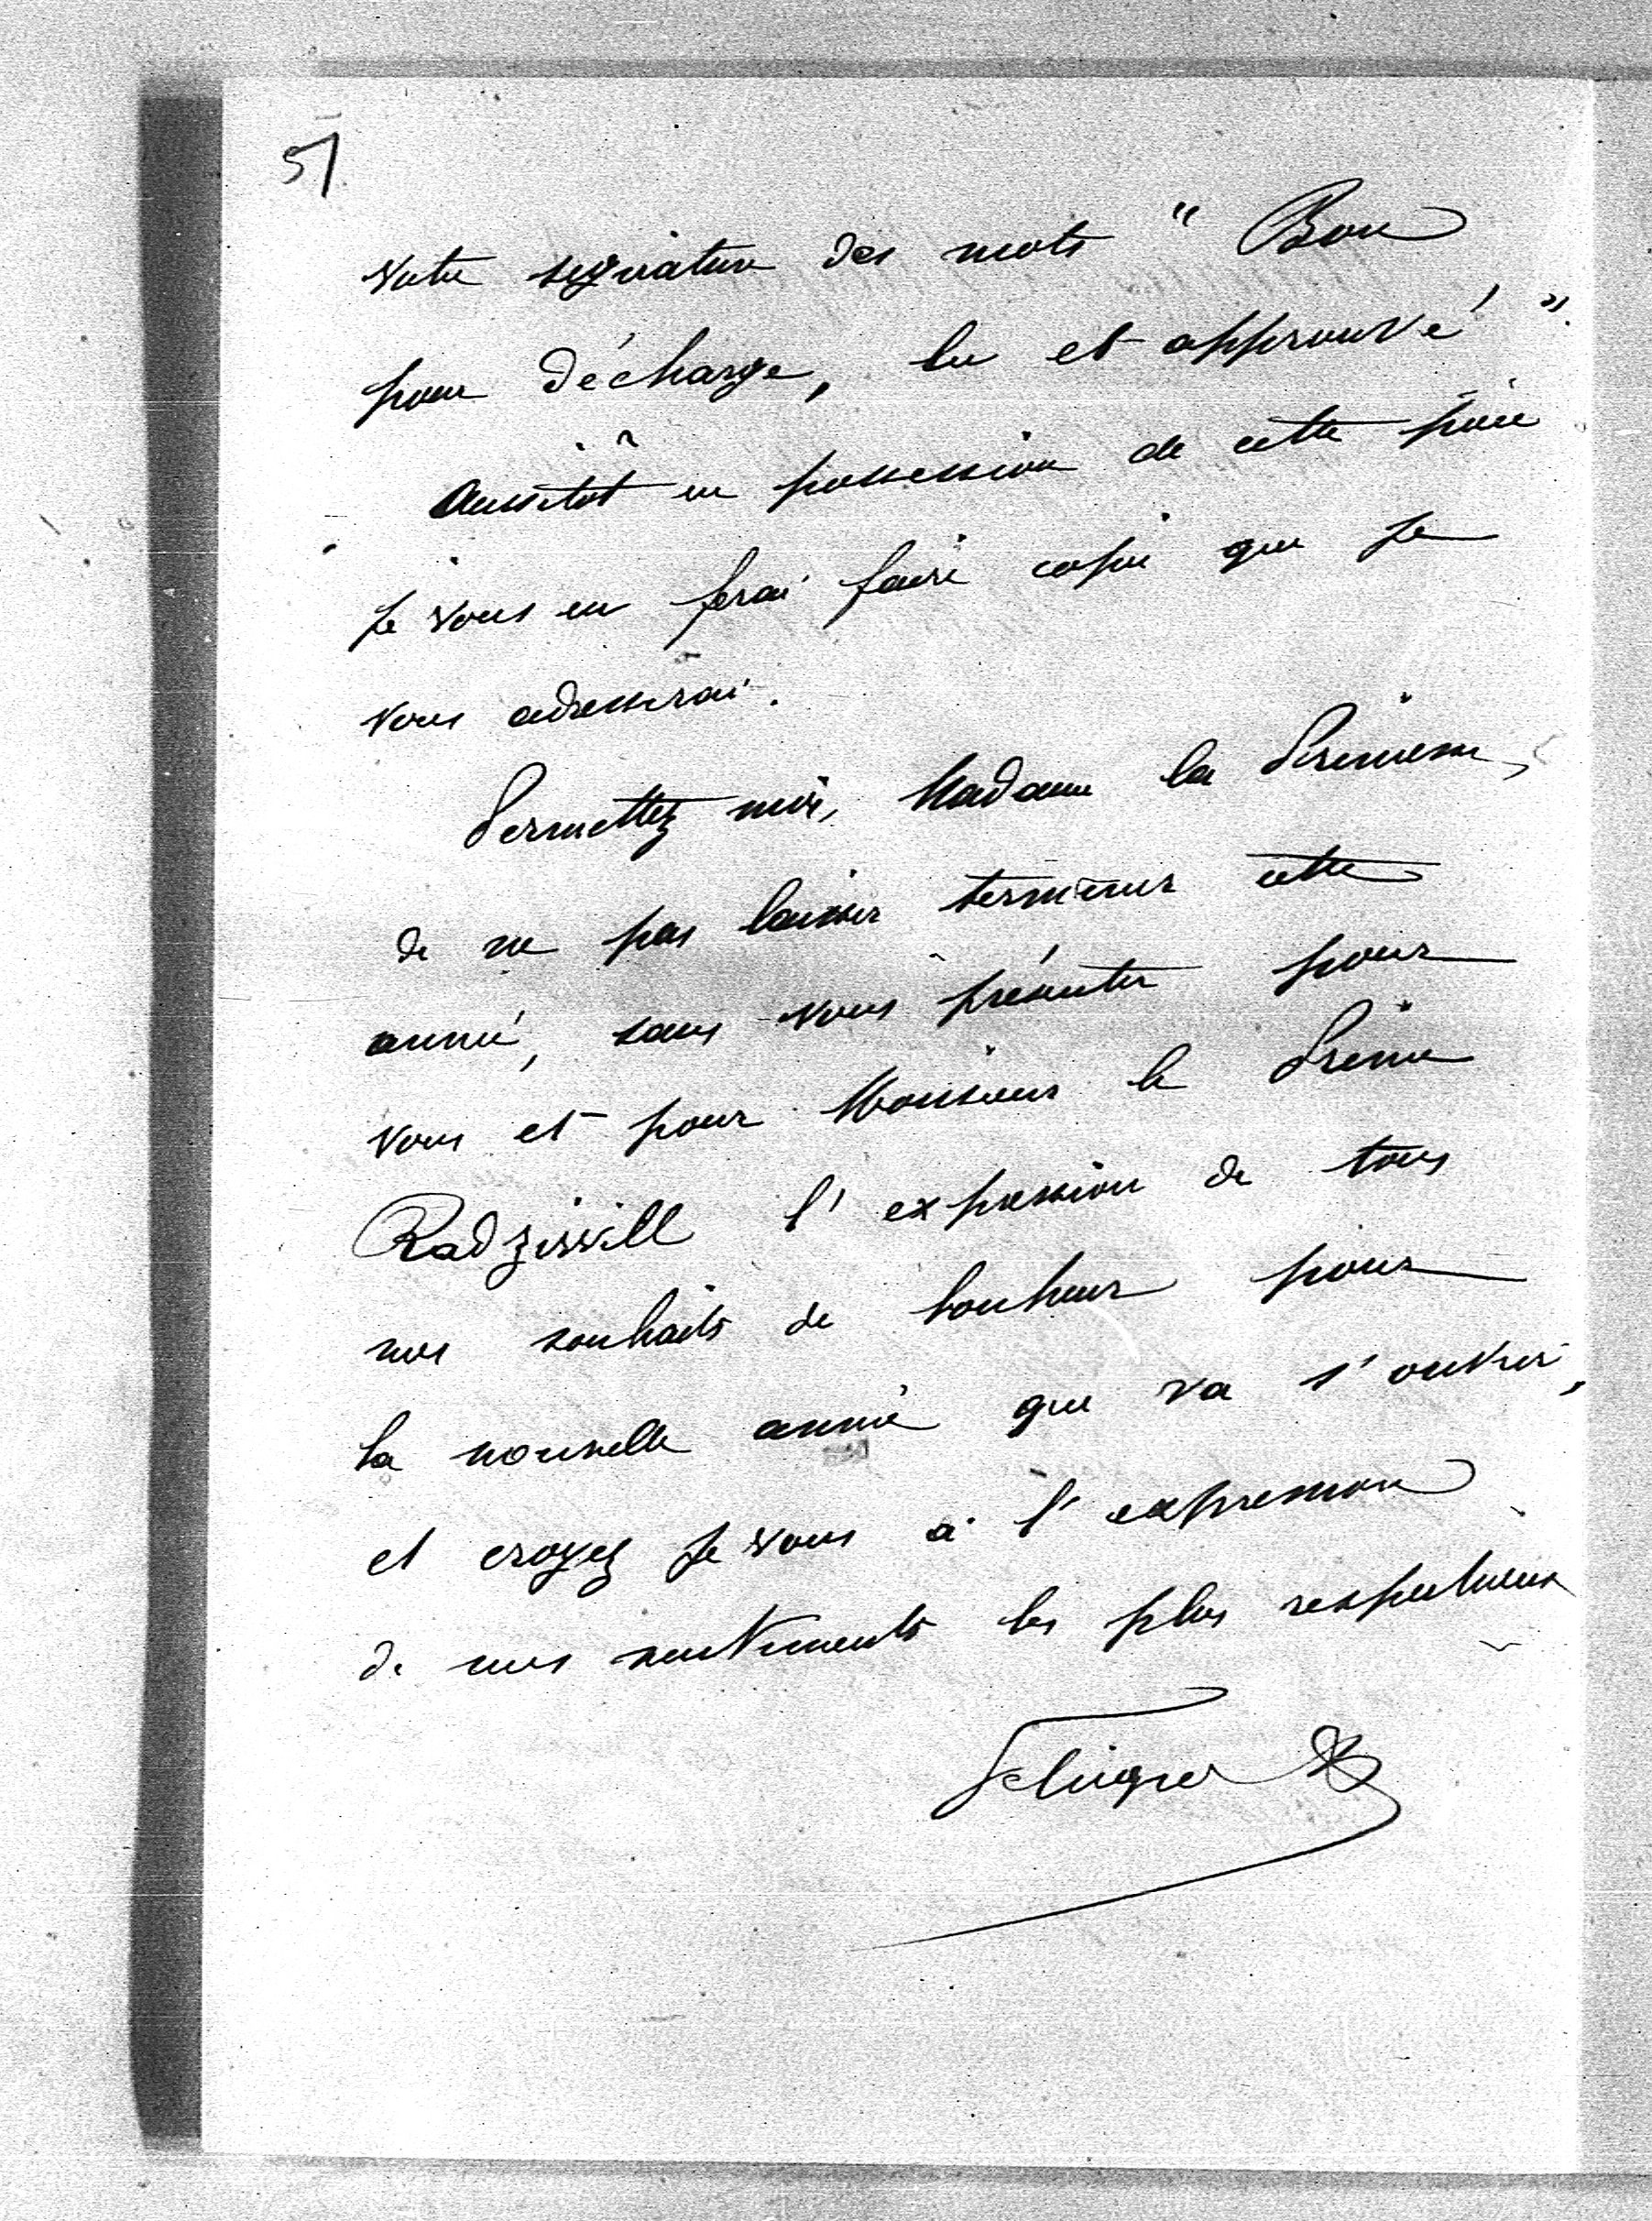 51
votre signature des mots " Bon
pour décharge, lu et approuvé ".
Aussitôt en possession de cette pièce
je vous en ferai faire copie que je
vous adresserai.
Permettez moi, Madame la Princesse,
de ne pas laisser terminer cette
année, sans vous présenter pour
vous et pour Monsieur le Prince
Radziwill l'expression de tous
mes souhaits de bonheur pour
la nouvelle année qui va s'ouvrir,
et croyez je vous à l'expression
de mes sentiments les plus respectueux